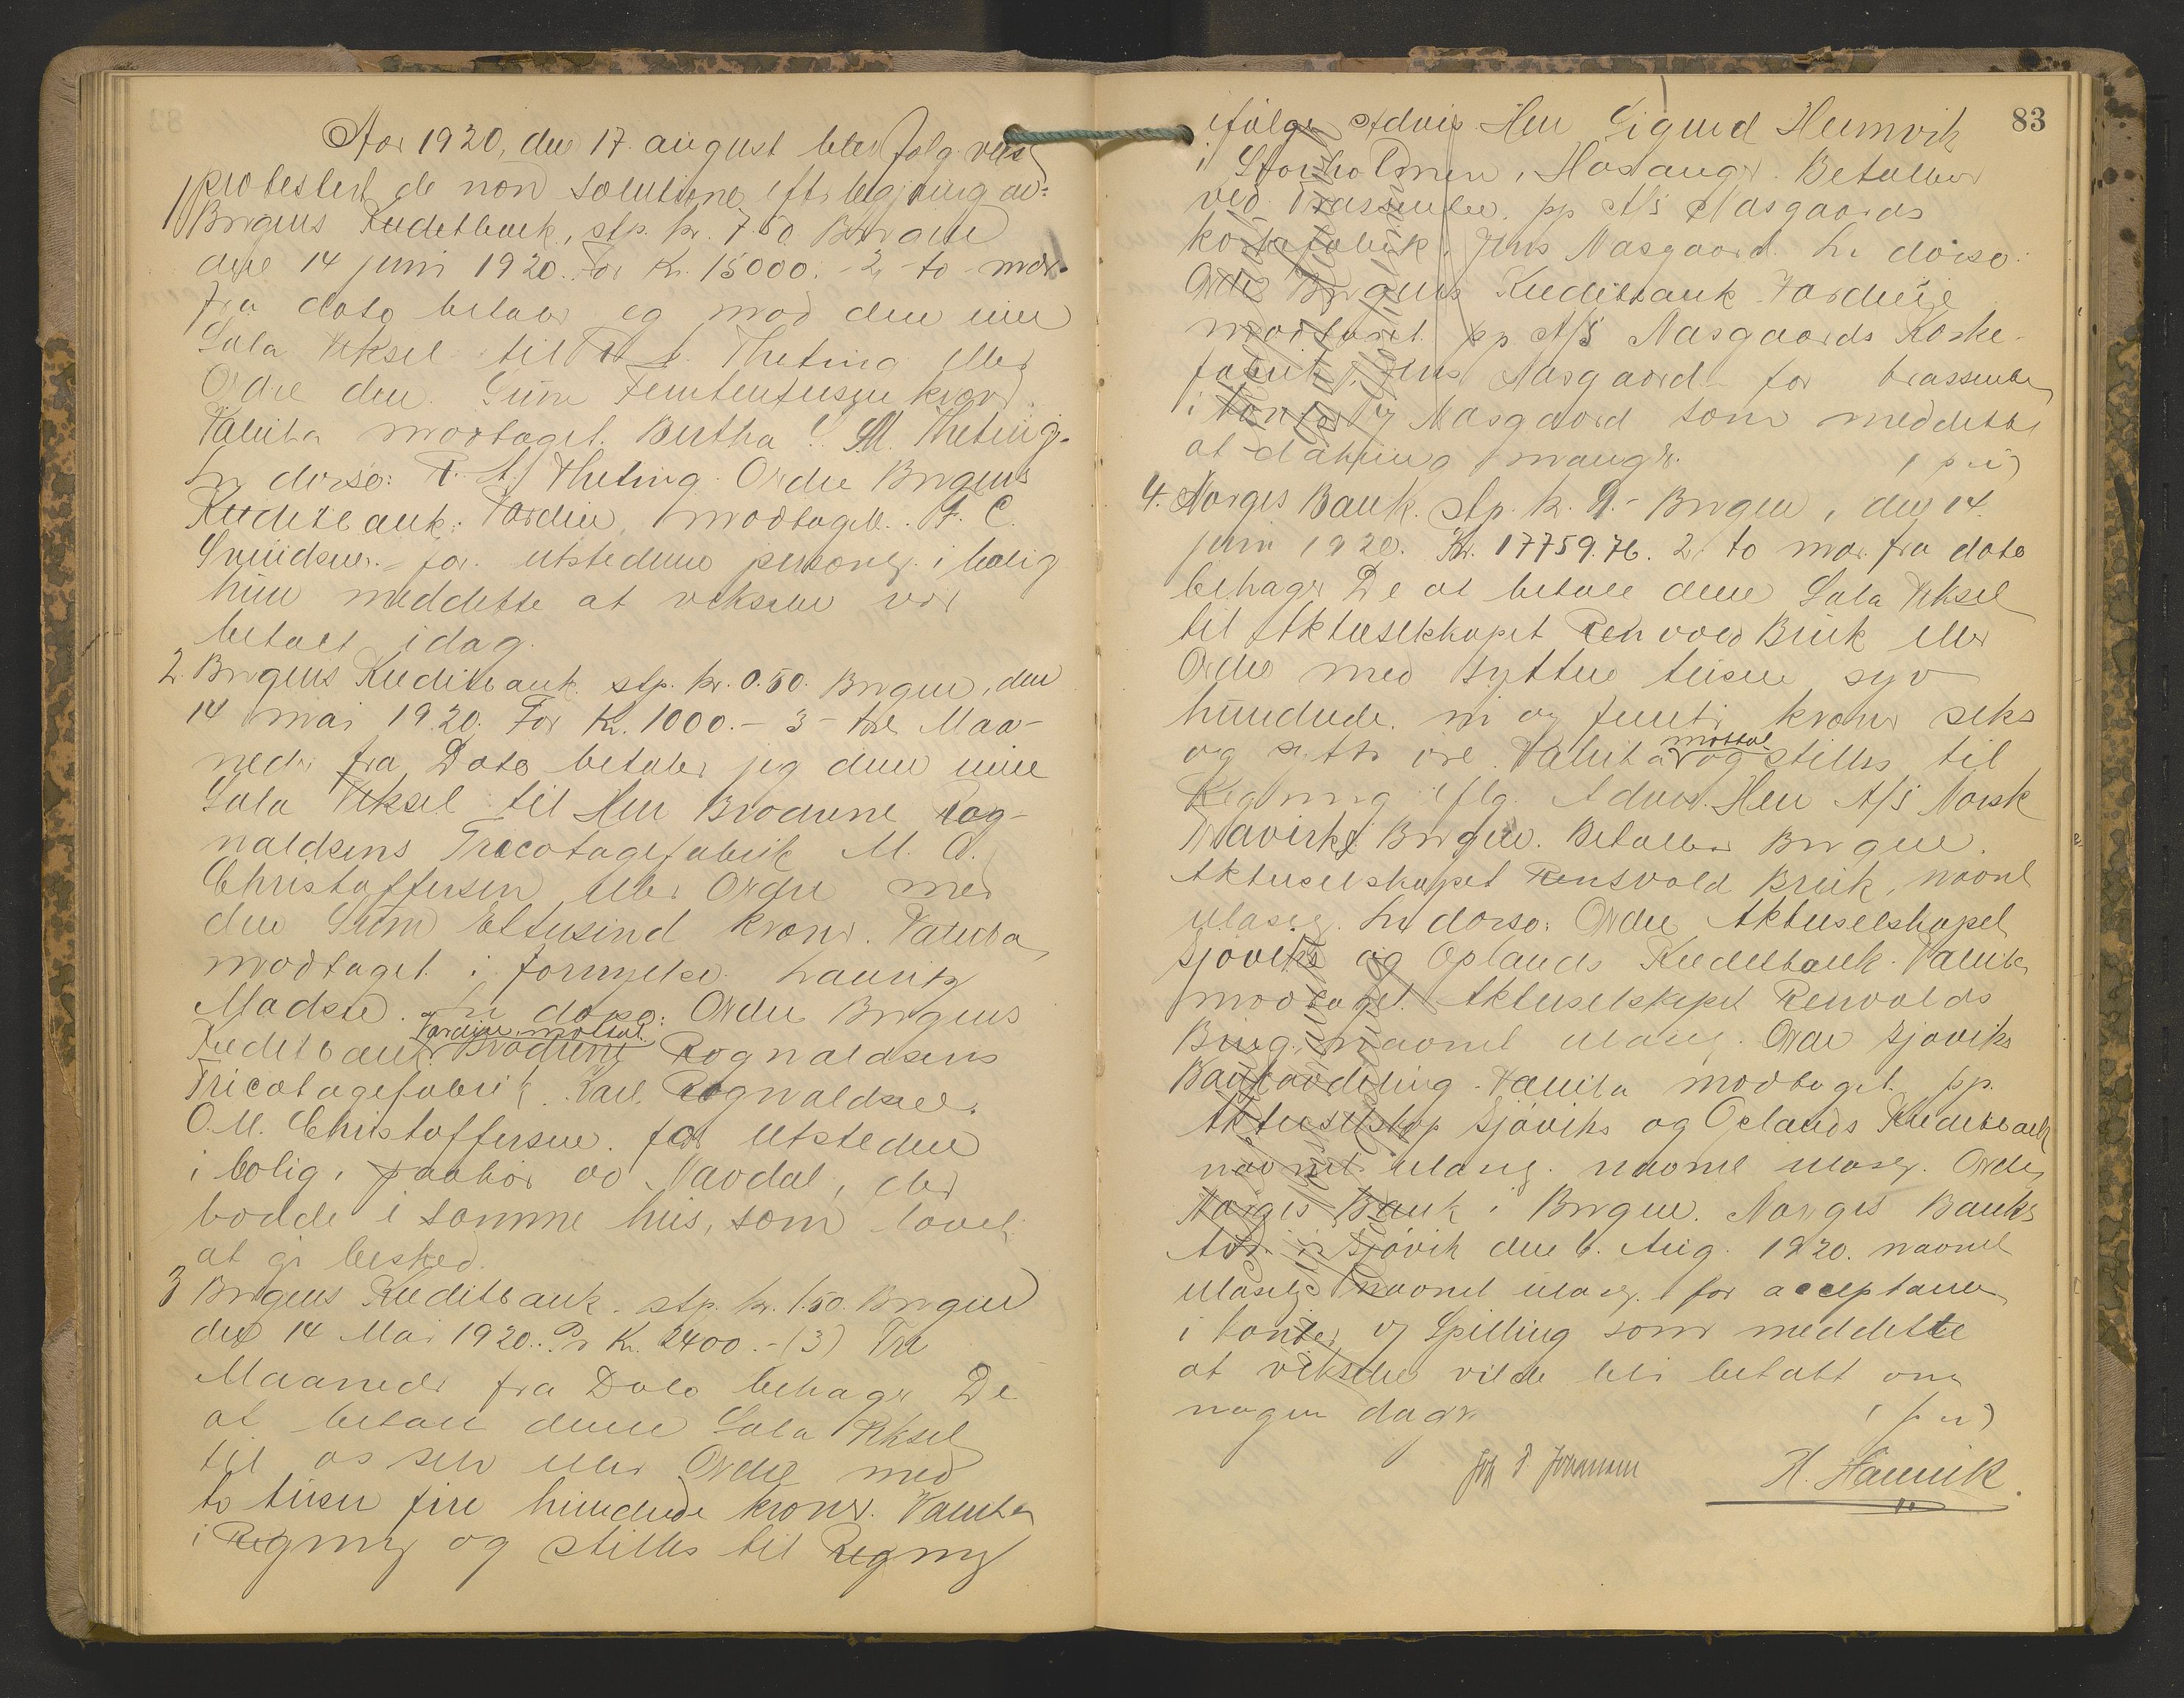 Aar 1920, den 17. august blev følg. veks.
1 protestert de non solutione efter begjæring av:
Bergens Kreditbank, stp. kr. 7.50. Bergen
den 14 juni 1920. For Kr. 15000. - 2 - to mdr.
fra dato betaler jeg mod denne min
Sola Veksel til Theting eller
Ordre den Sum Femtentusen kroner.
Valuta modtaget. Bertha S. M. Theting.
In dorso: Theting. Ordre Bergens
Kreditbank. Værdien modtaget. F. C.
Svendsen. - for utstederne personlig i bolig
hun meddelte at vekselen var
betalt idag.
2. Bergens Kreditbank. stp. kr. 0.50. Bergen, den
14 mai 1920. For Kr. 1000. - 3 - tre Maa-
neder fra Dato betaler jeg denne min
Sola Veksel til Herr Brødrene Rog-
naldsens Tricotagefabrik M. O.
Christoffersen eller Ordre med
den Sum Ettusind kroner. Valuta
modtaget i fornyelse. Lauritz
Madsen. In dorso: Ordre Bergens
Værdien mottat.
Kreditbank Brødrene Rognaldsens
Tricotagefabrik. Karl Rognaldsen.
O. M. Christoffersen. for utstederen
i bolig, paahør av Navdal, der
bodde i samme hus, som lovet
at gi besked.
3 Bergens Kreditbank. stp. kr. 1.50. Bergen
den 14 Mai 1920. Pr K. 2400. - (3) Tre
Maaneder fra Dato behager De
at betale denne Sola Veksel
til os selv eller Ordre med
to tusen fire hundrede kroner. Valuta
i Regning og stilles til Regning
83
ifølge Advis Herr Sigurd Heimvik
i Storholmen, Hosanger. Betalbar
ved Trassenten. pp A/S Nasgaards
kostefabrik, Jens Nasgaard. In dorso:
Ordre Bergens Kreditbank Værdien
modtaget. pp A/S Nasgaards Koste-
fabrik, Jens Nasgaard - for trassenten
i kontor og Nasgaard som meddelte
at dækning mangler.
4. Norges Bank. stp. kr. 9. - Bergen, den 14.
juni 1920. Kr. 17759.76. 2. to mdr. fra dato
behager De at betale denne Sola Veksel
til Aktieselskapet Renvold Bruk eller
Ordre med syttен tusen syv
hundrede ni og femti kroner seks
mottat
og sytti øre. Valuta og stilles til
Regning iflg. Advis. Herr A/S Norsk
Travirke Bergen. Betalbar Bergen.
Aktieselskapet Rensvold Bruk, navnet
ulæselig. In dorso: Ordre Aktieselskapet
Gjøviks og Oplands Kreditbank. Valuta
modtaget. Aktieselskapet Renvolds
Brug, navnet ulæselig. Ordre Gjøviks
Bankavdeling. Valuta modtaget. pp.
Aktieselskap Gjøviks og Oplands Kreditbank
navnet ulæselig. navnet ulæselig. Ordre
Norges Bank i Bergen. Norges Banks
Avd. i Gjøvik den 6. Aug. 1920. navnet
ulæselig navnet ulæselig. for acceptanten
i kontor og Spilling som meddelte
at vekselen vilde bli betalt om
nogen dager.
H. Hannik.